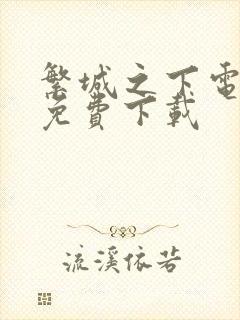 繁城之下電
免費下載
流溪依若